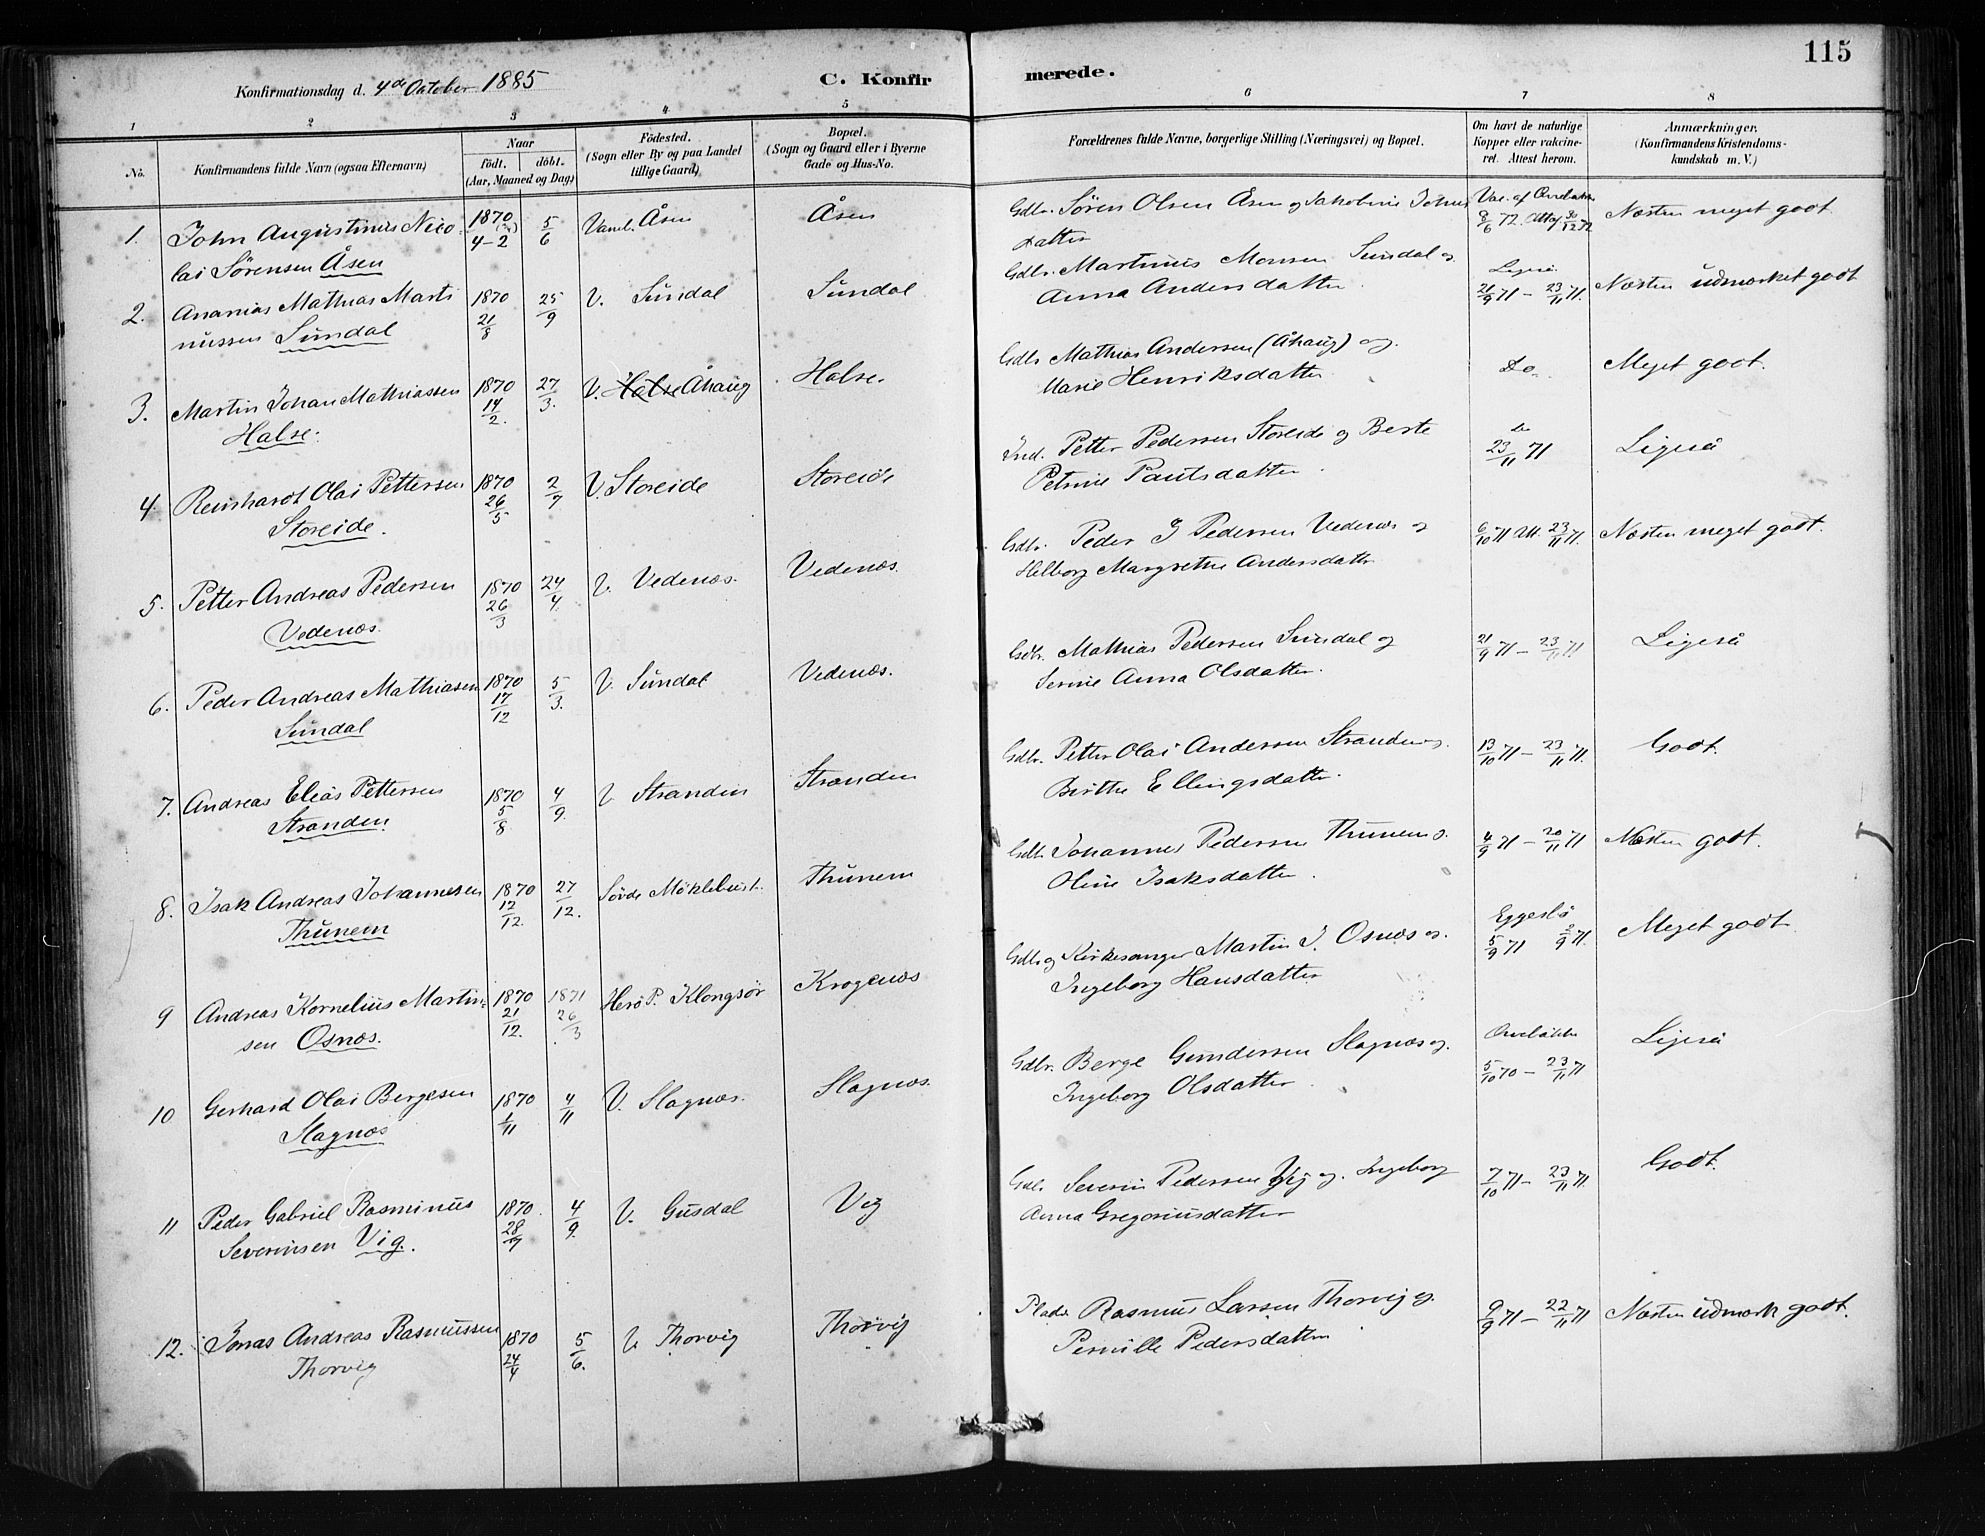 115
Konfirmationsdag d. 4de October 1885
C. Konfirmerede.
1 2 3 4 5 6 7 8
No.
Konfirmandens fulde Navn (ogsaa Efternavn)
Naar
födt. döbt.
(Aar, Maaned og Dag)
Födested.
(Sogn eller By og paa Landet
tillige Gaard)
Bopæl.
(Sogn og Gaard eller i Byerne
Gade og Hus-No.
Forældrenes fulde Navne, borgerlige Stilling (Næringsvei) og Bopæl.
Om havt de naturlige
Kopper eller vakcine-
ret. Attest herom.
Anmærkninger.
(Konfirmandens Kristendoms-
kundskab m. V.)
1. John Augustinus Nico- 1870 4-2 5/6 Vanel. Åsen Åsen Gdbr. Sören Olsen Åsen og Jakobine Johns Næsten meget godt.
lai Sörensen Åsen datter
2. Ananias Mathias Marti 1870 21/8 25/9 V. Sundal Sundal Gdbr. Martinus Monsen Sundal og Ligeså 21/9 71 - 23/11 71. Næsten udmærket godt
nussen Sundal Anna Andersdatter
3. Martin Johan Mathiassen 1870 14/2. 27/3. V. Halse Åhaug Halse. Gdbr Mathias Andersen (Åhaug) og Do. Meget godt.
Halse. Marie Henriksdatter.
4. Reinhardt Olai Pettersen 1870 26/5 2/7 V. Storeide Storeide Ind. Petter Pedersen Storeide og Berte 23/11 71 Ligeså
Storeide. Petrine Paulsdatter.
5. Petter Andreas Pedersen 1870 26/3 24/4. V. Vedenæs. Vedenæs. Gdbr. Peder J Pedersen Vedenæs og 6/10 71 Att. 23/11 71. Næsten meget godt.
Vedenæs. Helborg Margrethe Andersdatter
6. Peder Andreas Mathiasen 1870 17/12 5/3. V. Sundal Vedenæs. Gdbr. Mathias Pedersen Sundal og 21/9 71 - 23/11 71. Ligeså
Sundal Serine Anna Olsdatter.
7. Andreas Elias Pettersen 1870 5/8 4/9. V Stranden Stranden Gdbr. Petter Olai Andersen Stranden og 13/10 71 - 23/11 71. Godt.
Stranden. Birthe Ellingsdatter.
8. Isak Andreas Johannesen 1870 12/12. 27/12. Sövde Möklebust. Thunem Gdbr. Johannes Pedersen Thunem og 4/9 71 - 20/11 71 Næsten godt.
Thunem Oline Isaksdatter.
9 Andreas Kornelius Martin- 1870 21/12. 1871 26/3 Herö P. Klongsör Krogenæs Gdbr og Kirkesanger Martin J. Osnæs og 5/9 71 Meget godt
sen Osnæs. Ingeborg Hansdatter
10 Gerhard Olai Bergesen 1870 1/11 4/11 V. Slagnæs. Slagnæs. Gdbr. Berge Gundersen Slagnæs og 5/10 70 - 23/11 71 Ligeså
Slagnæs Ingeborg Olsdatter.
11 Peder Gabriel Rasminus 1870. 28/7 4/9. V. Gusdal Vig Gdbr. Severin Pedersen Vig og Ingeborg 7/10 71 - 23/11 71. Godt.
Severinsen Vig. Anna Gregoriusdatter
12. Jonas Andreas Rasmussen 1870 24/4 5/6. V. Thorvig Thorvig Plads. Rasmus Larsen Thorvig og 9/9 71 - 22/11 71 Næsten udmærk godt.
Thorvig Pernille Pedersdatter